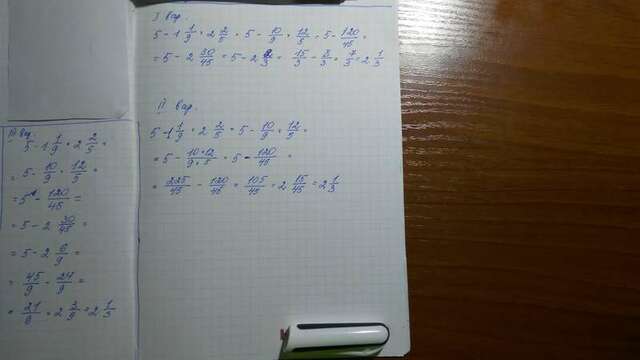 I вар.
5 - 1 1/9 · 2 2/5 = 5 - 10/9 · 12/5 = 5 - 120/45 =
= 5 - 2 30/45 = 5 - 2 2/3 = 15/3 - 8/3 = 7/3 = 2 1/3
II вар.
5 - 1 1/9 · 2 2/5 = 5 - 10/9 · 12/5 =
= 5 - 10·12/9·5 = 5 - 120/45 =
= 225/45 - 120/45 = 105/45 = 2 15/45 = 2 1/3
вар.
5 - 1 1/9 · 2 2/5 =
= 5 - 10/9 · 12/5 =
= 5 - 120/45 =
= 5 - 2 30/45 =
= 5 - 2 6/9 =
= 45/9 - 24/9 =
= 21/9 = 2 3/9 = 2 1/3